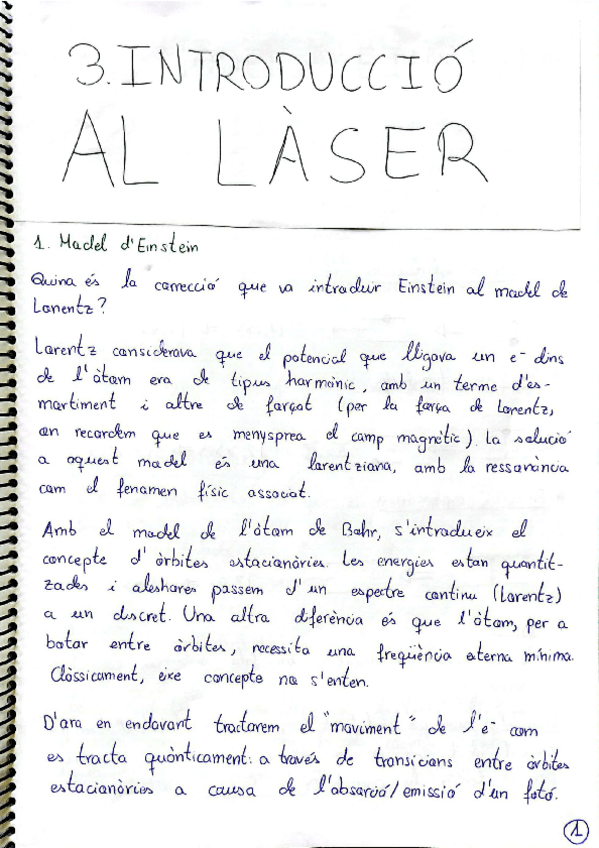 3. INTRODUCCIÓ
AL LÀSER
1. Model d'Einstein
Quina és la correcció que va introduir Einstein al model de
Lorentz?
Lorentz considerava que el potencial que lligava un e⁻ dins
de l'àtom era de tipus harmònic, amb un terme d'es-
mortiment i altre de forçat (per la força de Lorentz,
on recordem que es menysprea el camp magnètic). La solució
a aquest model és una lorentziana, amb la ressonància
com el fenomen físic associat.
Amb el model de l'àtom de Bohr, s'introdueix el
concepte d'òrbites estacionàries. Les energies estan quantit-
zades i aleshores passem d'un espectre continu (Lorentz)
a un discret. Una altra diferència és que l'àtom, per a
botar entre òrbites, necessita una freqüència externa mínima.
Clàssicament, eixe concepte no s'entén.
D'ara en endavant tractarem el "moviment" de l'e⁻ com
es tracta quànticament: a través de transicions entre òrbites
estacionàries a causa de l'absorció/emissió d'un fotó.
1